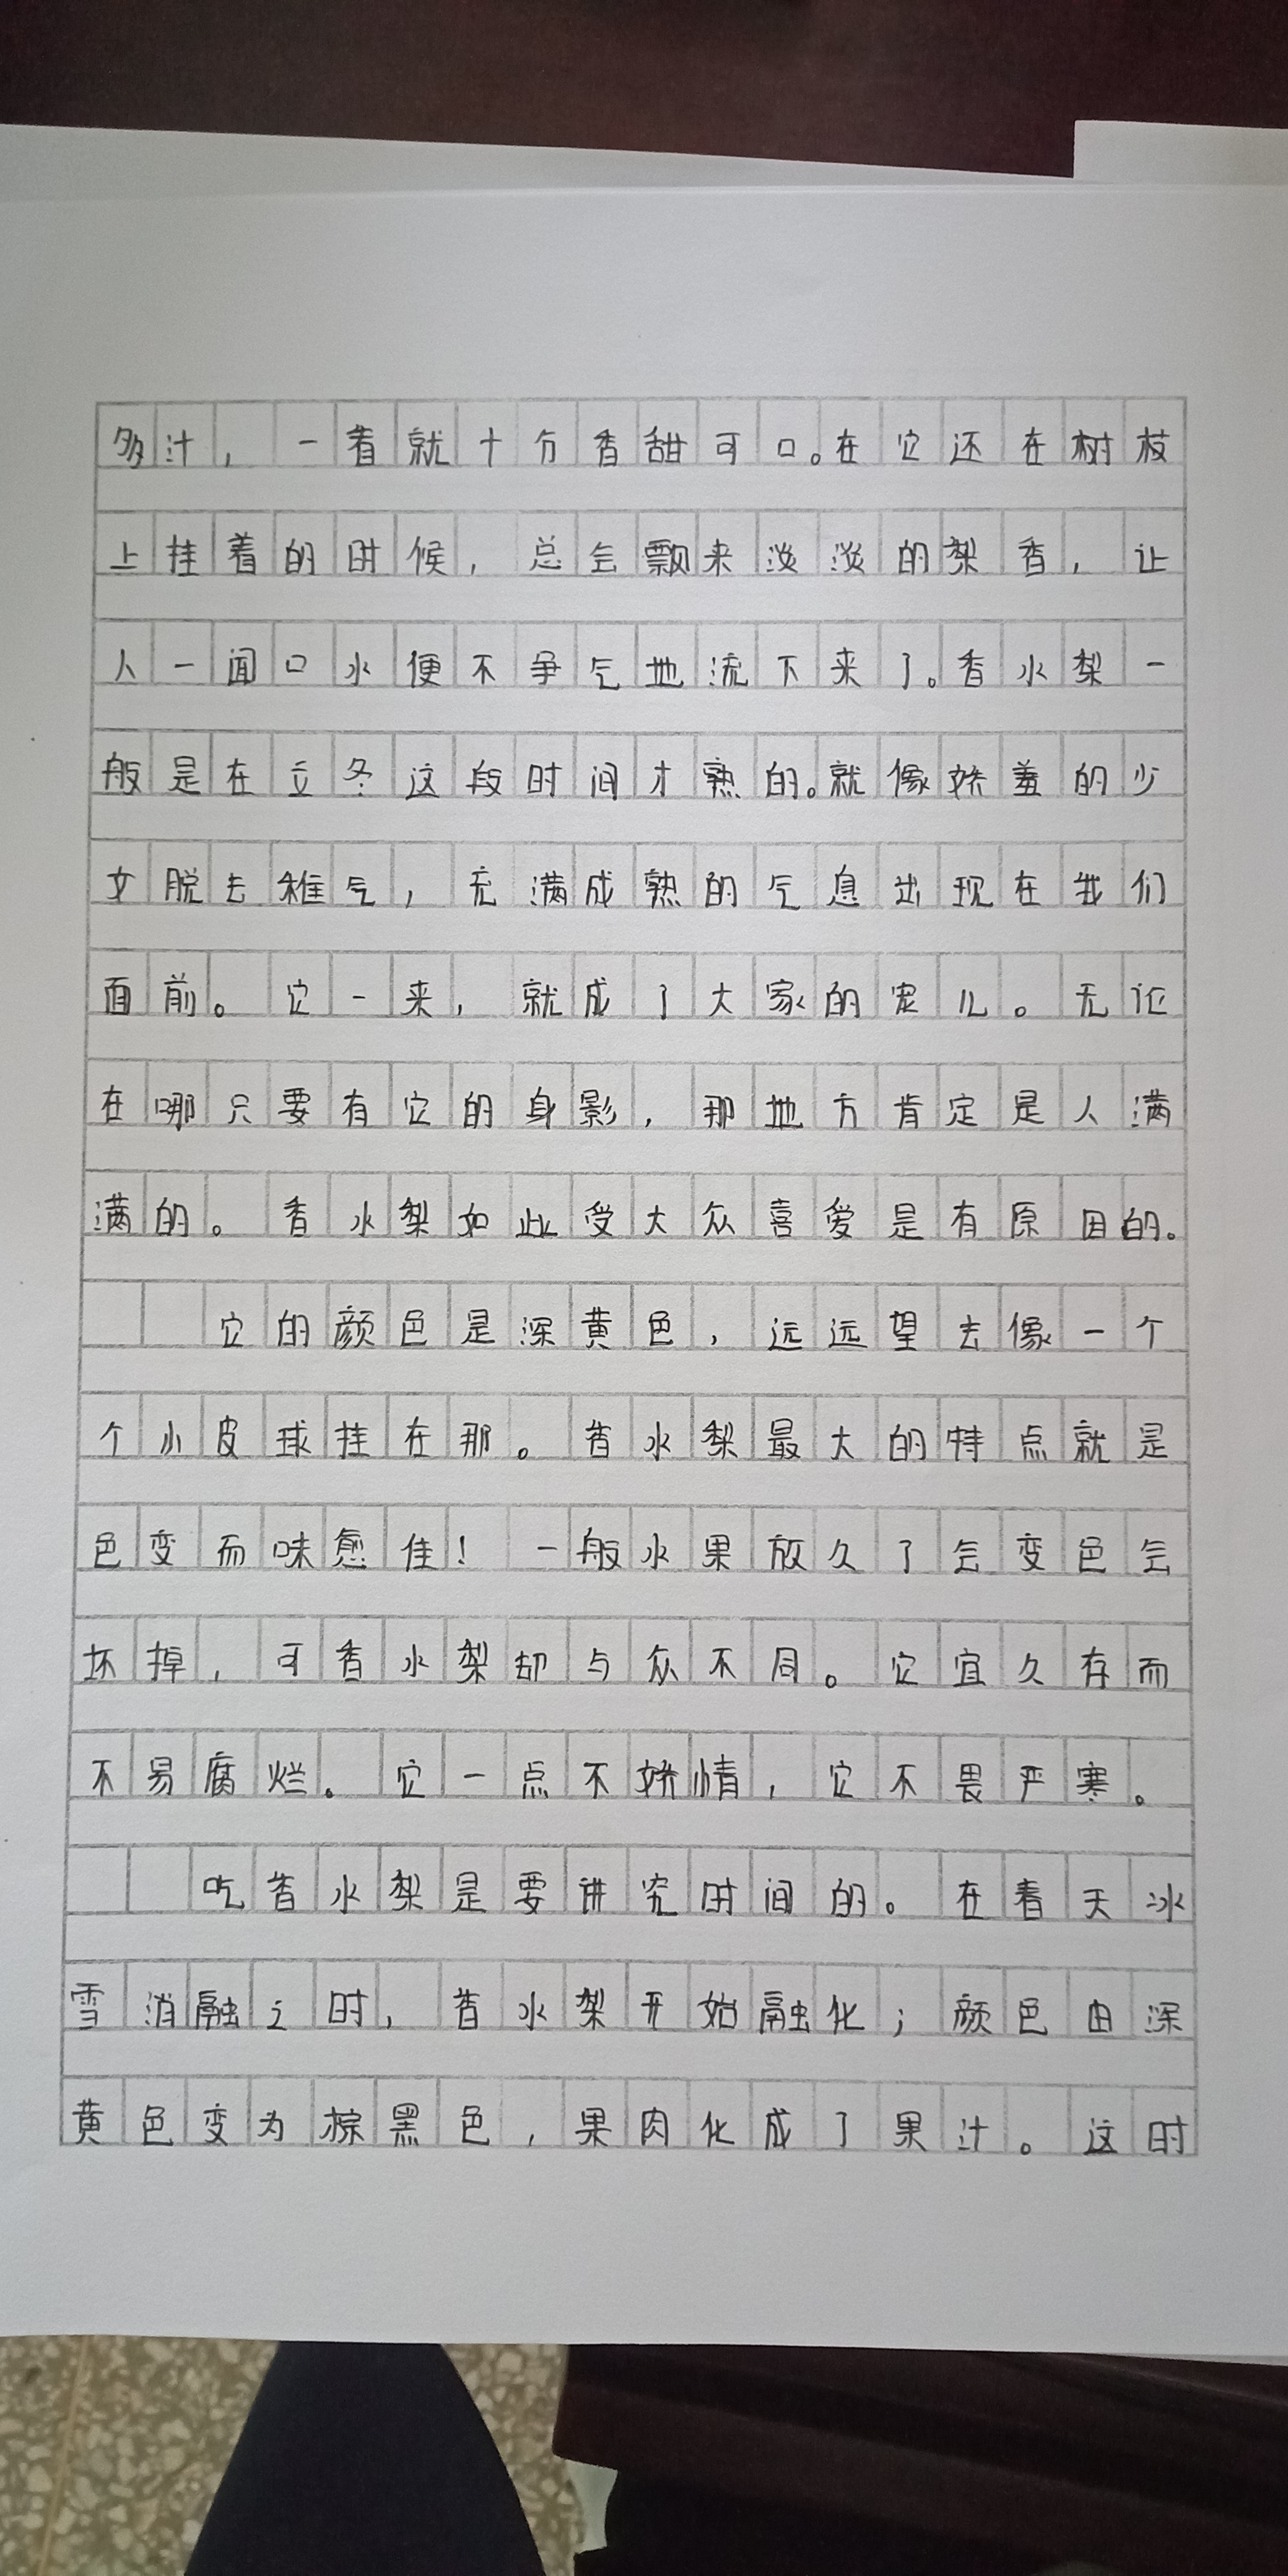 多汁，一看就十分香甜可口。在它还在树枝
上挂着的时候，总会飘来淡淡的梨香，让
人一闻口水便不争气地流下来了。香水梨一
般是在立冬这段时间才熟的。就像娇羞的少
女脱去稚气，充满成熟的气息出现在我们
面前。它一来，就成了大家的宠儿。无论
在哪只要有它的身影，那地方肯定是人满
满的。香水梨如此受大众喜爱是有原因的。
它的颜色是深黄色，远远望去像一个
个小皮球挂在那。香水梨最大的特点就是
色变而味愈佳！一般水果放久了会变色会
坏掉，可香水梨却与众不同。它宜久存而
不易腐烂。它一点不娇情，它不畏严寒。
吃香水梨是要讲究时间的。在春天冰
雪消融之时，香水梨开始融化；颜色由深
黄色变为棕黑色，果肉化成了果汁。这时